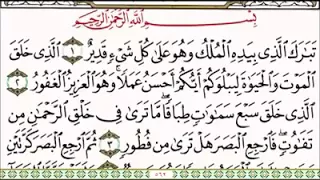 بِسْمِ ٱللَّهِ ٱلرَّحْمَٰنِ ٱلرَّحِيمِ
تَبَٰرَكَ ٱلَّذِى بِيَدِهِ ٱلْمُلْكُ وَهُوَ عَلَىٰ كُلِّ شَىْءٍ قَدِيرٌ ١ ٱلَّذِى خَلَقَ
ٱلْمَوْتَ وَٱلْحَيَوٰةَ لِيَبْلُوَكُمْ أَيُّكُمْ أَحْسَنُ عَمَلًا وَهُوَ ٱلْعَزِيزُ ٱلْغَفُورُ ٢
ٱلَّذِى خَلَقَ سَبْعَ سَمَٰوَٰتٍ طِبَاقًا مَّا تَرَىٰ فِى خَلْقِ ٱلرَّحْمَٰنِ مِن
تَفَٰوُتٍ فَٱرْجِعِ ٱلْبَصَرَ هَلْ تَرَىٰ مِن فُطُورٍ ٣ ثُمَّ ٱرْجِعِ ٱلْبَصَرَ كَرَّتَيْنِ
٥٦٢